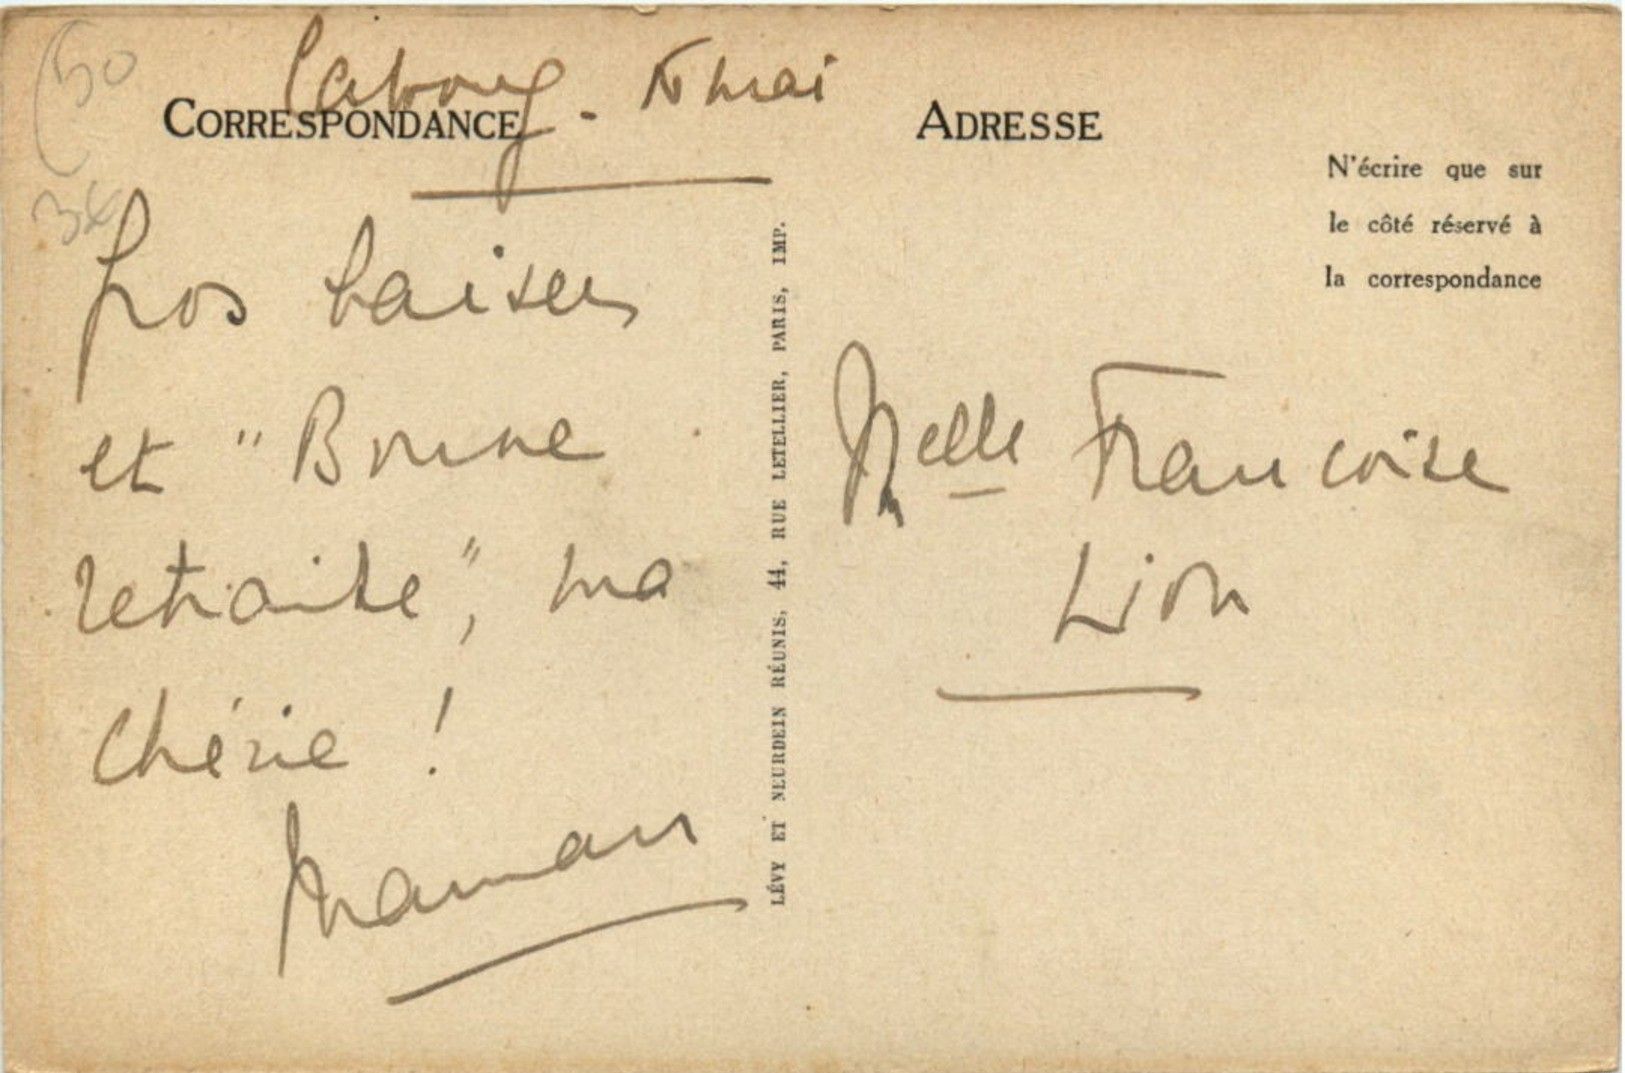 (50
Cabourg - 10 mai
CORRESPONDANCE
ADRESSE
N'écrire que sur
le côté réservé à
la correspondance
Gros baisers
et "Bonne
retraite", ma
chérie !
Maman
LÉVY ET NEURDEIN RÉUNIS, 44, RUE LETELLIER, PARIS, IMP.
Melle Francoise
Lion